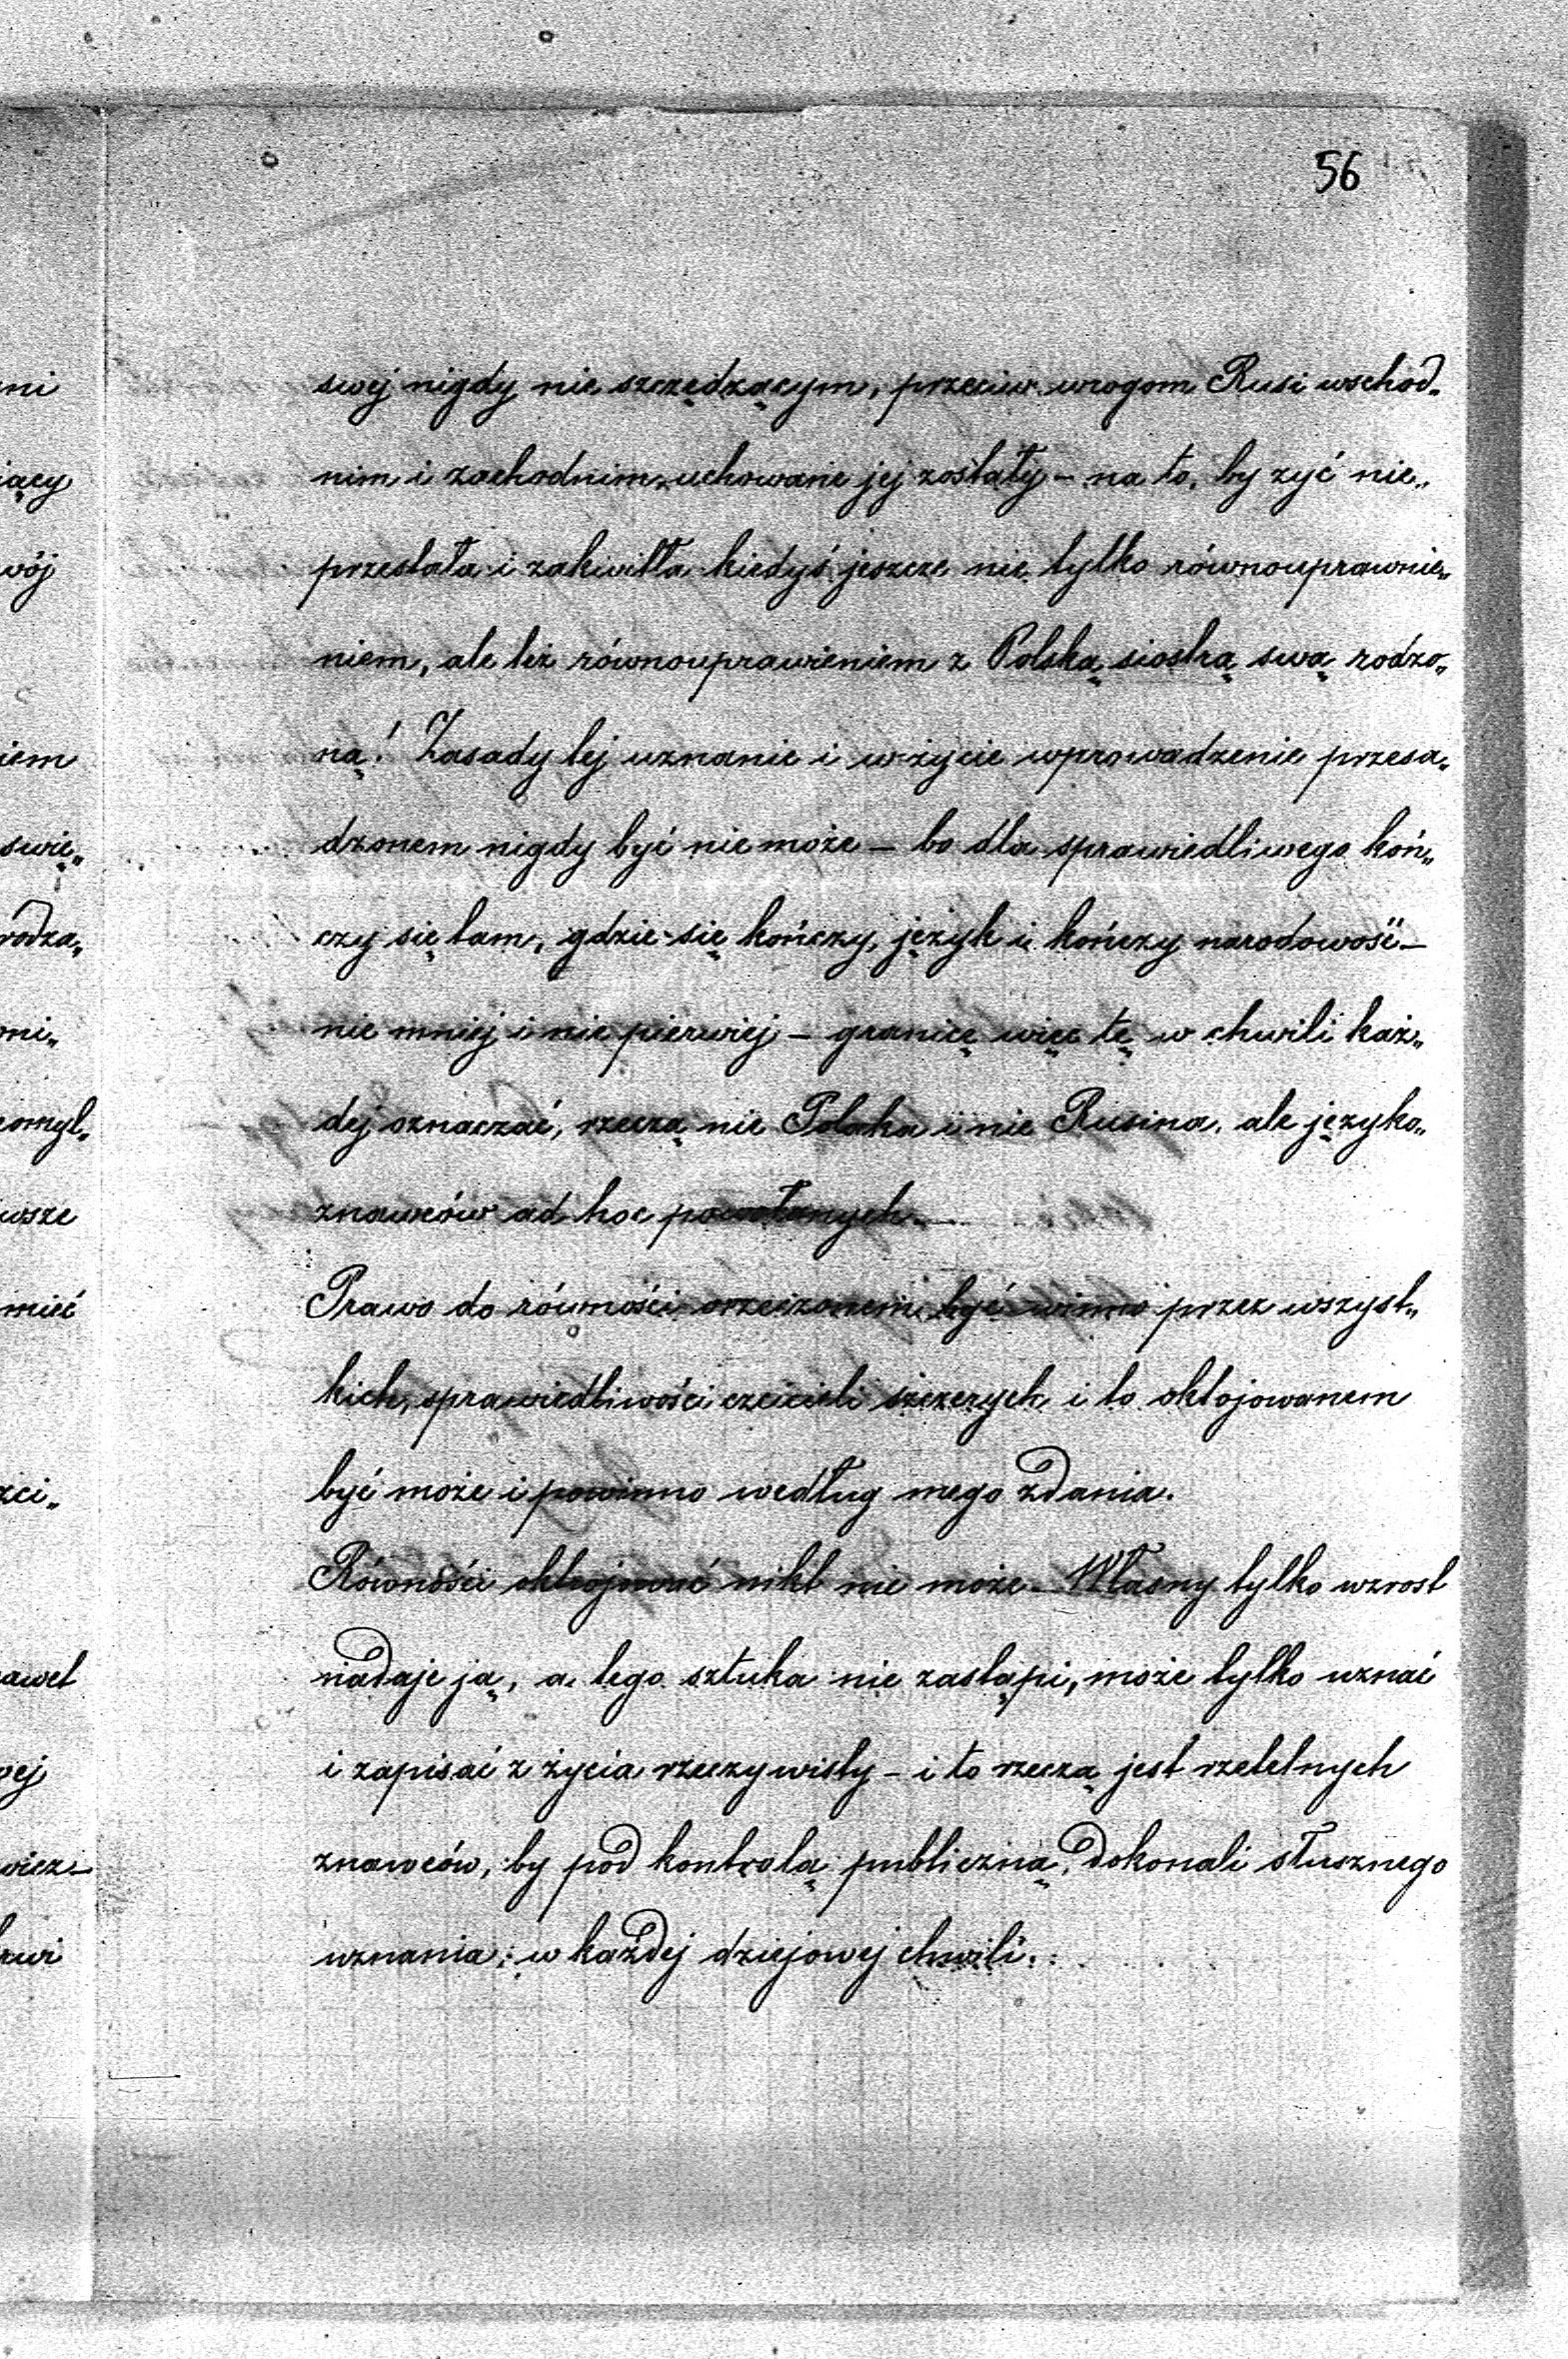 56
swej nigdy nie szczędzącym, przeciw wrogom Rusi wschod„
nim i zachodnim, uchowane jej zostały – na to, by żyć nie„
przestała i zakwitła kiedyś jeszcze nie tylko równouprawnie„
niem, ale też równouprawieniem z Polską siostrą swą rodzo„
ną! Zasady tej uznanie i w życie wprowadzenie przesą„
dzonem nigdy być nie może – bo dla sprawiedliwego koń„
czy się tam, gdzie się kończy, język i kończy narodowość –
nie mniej i nie pierwiej – granicę więc tę w chwili każ„
dej oznaczać, rzeczą nie Polaka i nie Rusina, ale języko„
znawców ad hoc powołanych.
Prawo do równości orzeczonem być winno przez wszyst„
kich, sprawiedliwości czcicieli szczerych, i to oktojowanem
być może i powinno według mego zdania.
Równości oktrojować nikt nie może – Własny tylko wzrost
nadaje ją, a tego sztuka nie zastąpi, może tylko uznać
i zapisać z życia rzeczywisty – i to rzeczą jest rzetelnych
znawców, by pod kontrolą publiczną, dokonali słusznego
uznania; w każdej dziejowej chwili.
ni
iący
wój
iem
swię„
rodza„
ni„
omyl„
wsze
mieć
ści„
awet
ej
wicz –
krwi